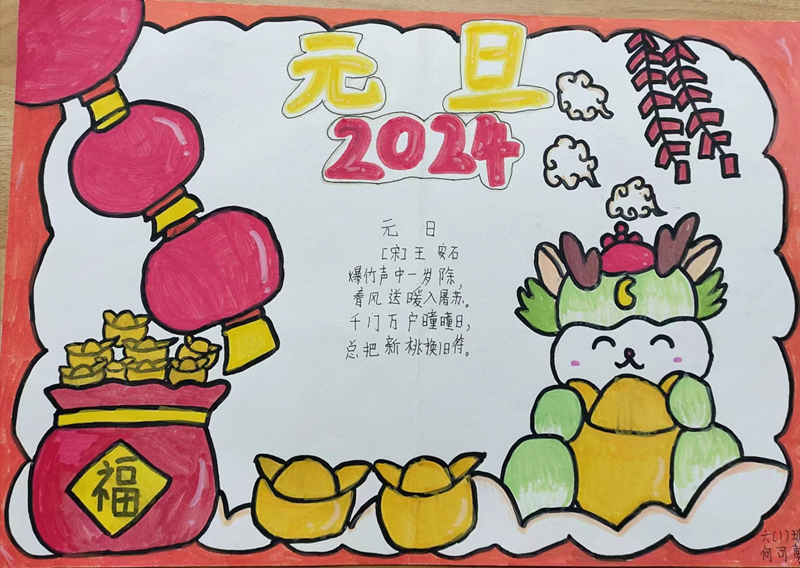 元旦
2024
元日
[宋]王安石
爆竹声中一岁除,
春风送暖入屠苏。
千门万户瞳瞳日,
总把新桃换旧符。
福
六(1)班
何可